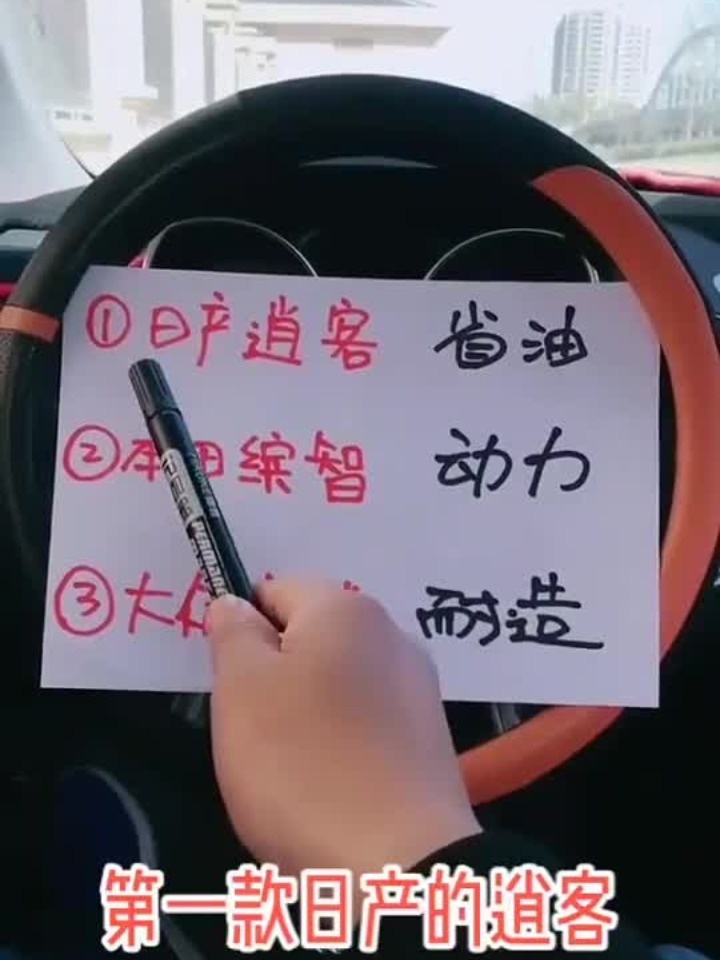 ①日产逍客 省油
②本田缤智 动力
③大众 耐造
第一款日产的逍客